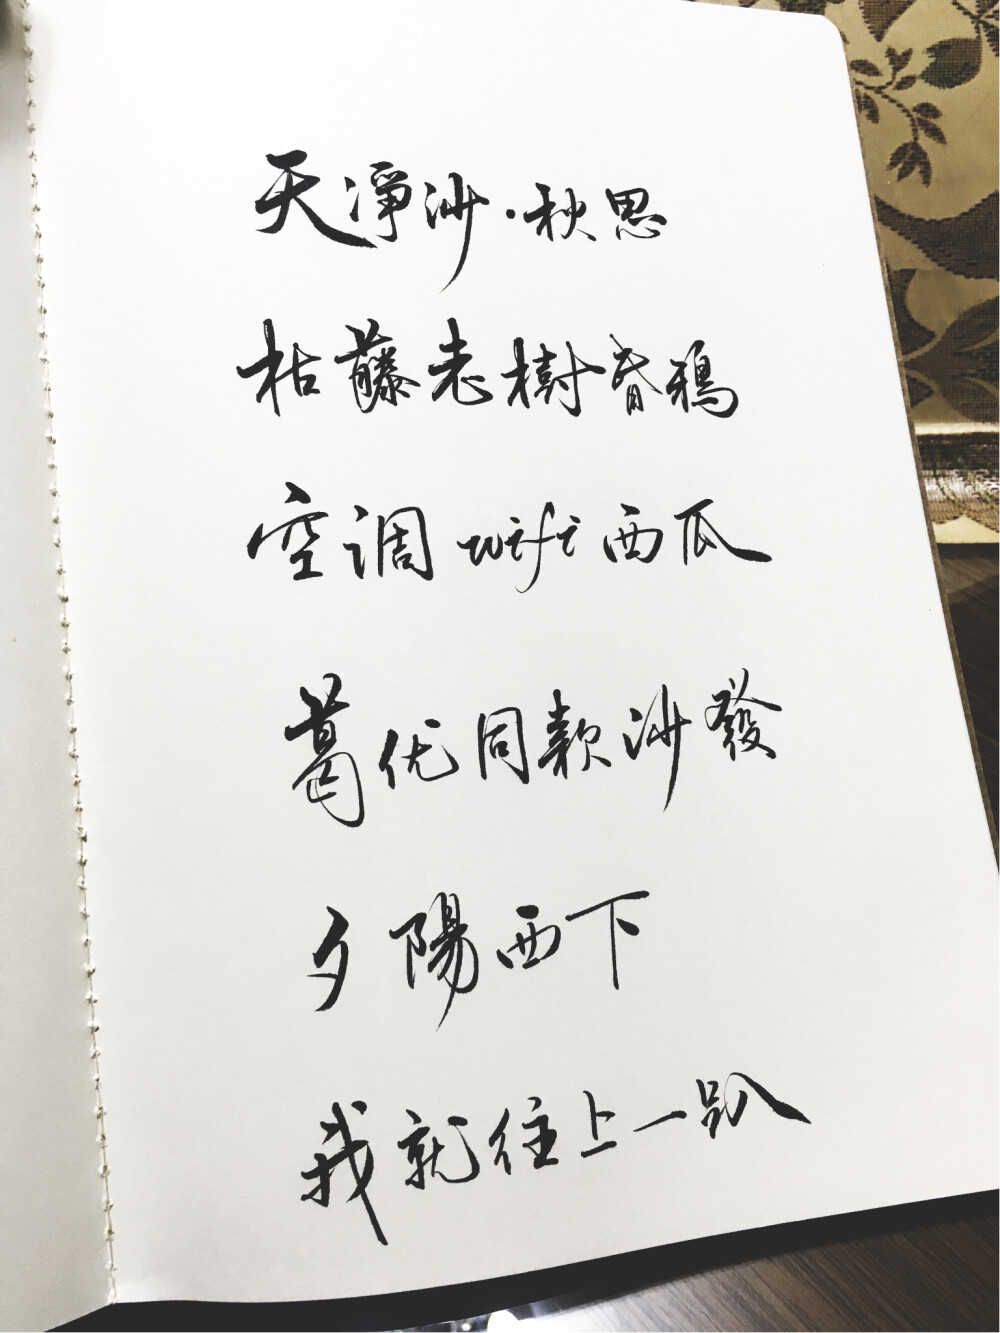 天淨沙·秋思
枯藤老樹昏鴉
空调wifi西瓜
葛优同款沙發
夕陽西下
我就往上一趴